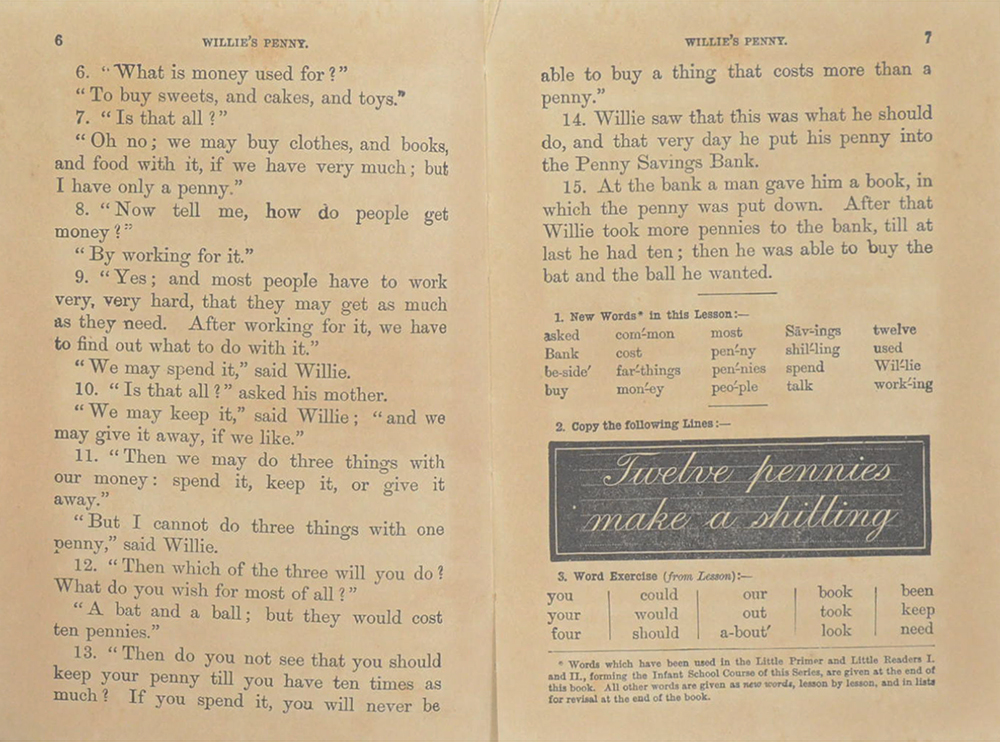 6
WILLIE'S PENNY.
6. "What is money used for?"
"To buy sweets, and cakes, and toys."
7. "Is that all?"
"Oh no; we may buy clothes, and books,
and food with it, if we have very much; but
I have only a penny."
8. "Now tell me, how do people get
money?"
"By working for it."
9. "Yes; and most people have to work
very, very hard, that they may get as much
as they need. After working for it, we have
to find out what to do with it."
"We may spend it," said Willie.
10. "Is that all?" asked his mother.
"We may keep it," said Willie; "and we
may give it away, if we like."
11. "Then we may do three things with
our money: spend it, keep it, or give it
away."
"But I cannot do three things with one
penny," said Willie.
12. "Then which of the three will you do?
What do you wish for most of all?"
"A bat and a ball; but they would cost
ten pennies."
13. "Then do you not see that you should
keep your penny till you have ten times as
much? If you spend it, you will never be
WILLIE'S PENNY.
7
able to buy a thing that costs more than a
penny."
14. Willie saw that this was what he should
do, and that very day he put his penny into
the Penny Savings Bank.
15. At the bank a man gave him a book, in
which the penny was put down. After that
Willie took more pennies to the bank, till at
last he had ten; then he was able to buy the
bat and the ball he wanted.
1. New Words* in this Lesson:—
asked com´-mon most Sāv´-ings twelve
Bank cost pen´-ny shil´-ling used
be-side´ far´-things pen´-nies spend Wil´-lie
buy mon´-ey peo´-ple talk work´-ing
2. Copy the following Lines:—
Twelve pennies
make a shilling
3. Word Exercise (from Lesson):—
you could our book been
your would out took keep
four should a-bout´ look need
* Words which have been used in the Little Primer and Little Readers I.
and II., forming the Infant School Course of this Series, are given at the end of
this book. All other words are given as new words, lesson by lesson, and in lists
for revisal at the end of the book.